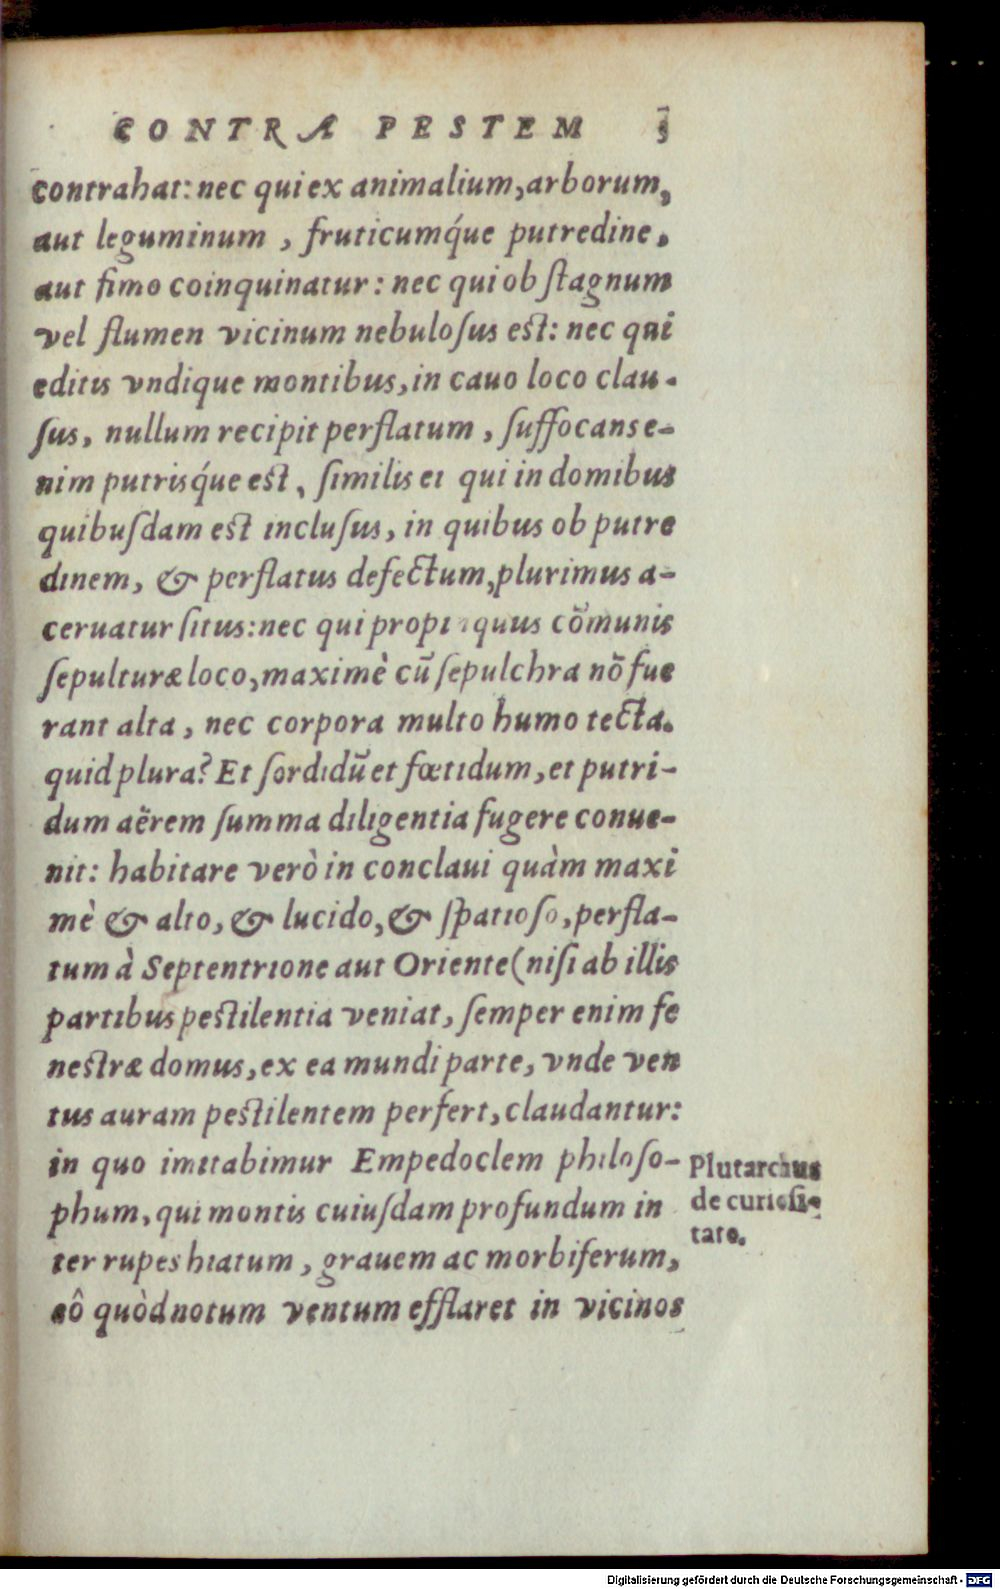 CONTRA PESTEM 5
contrahat: nec qui ex animalium, arborum,
aut leguminum , fruticumq́ue putredine,
aut fimo coinquinatur: nec qui ob ſtagnum
vel flumen vicinum nebuloſus est: nec qui
editis vndique montibus, in cauo loco clau-
ſus, nullum recipit perflatum , ſuffocans e-
nim putrisq́ue est, ſimilis ei qui in domibus
quibuſdam est incluſus, in quibus ob putre
dinem, & perflatus defectum, plurimus a-
ceruatur ſitus: nec qui propinquus cōmunis
ſepulturæ loco, maximè cū ſepulchra nō fue
rant alta, nec corpora multo humo tecta.
quid plura? Et ſordidū et fœtidum, et putri-
dum aërem ſumma diligentia fugere conue-
nit: habitare verò in conclaui quàm maxi
mè & alto, & lucido, & ſpatioſo, perfla-
tum à Septentrione aut Oriente (niſi ab illis
partibus pestilentia veniat, ſemper enim fe
nestræ domus, ex ea mundi parte, vnde ven
tus auram pestilentem perfert, claudantur:
in quo imitabimur Empedoclem philoſo-
phum, qui montis cuiuſdam profundum in
ter rupes hiatum , grauem ac morbiferum,
eô quòd notum ventum efflaret in vicinos
Plutarchus
de curioſi-
tate.
Digitalisierung gefördert durch die Deutsche Forschungsgemeinschaft - DFG